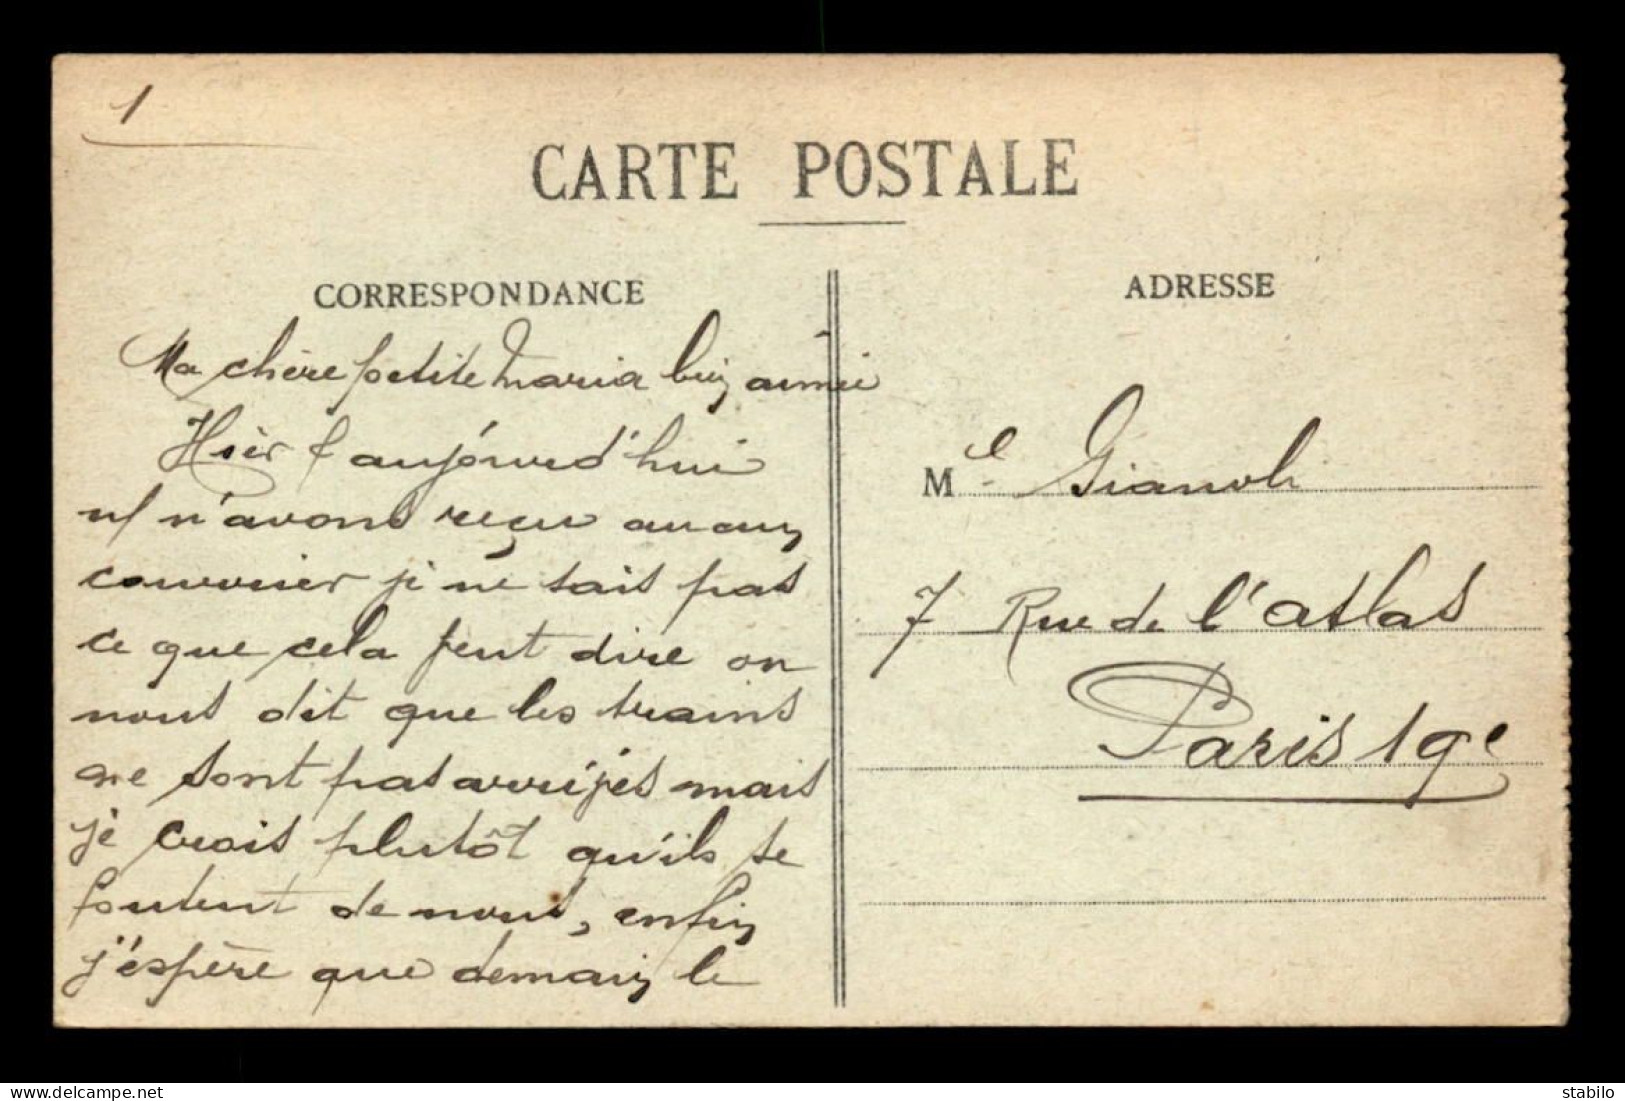 1
CARTE POSTALE
CORRESPONDANCE
Ma chère petite Maria bien aimée
Hier & aujourd'hui
n/ n'avons reçu aucun
courrier je ne sais pas
ce que cela peut dire on
nous dit que les trains
ne sont pas arrivés mais
je crois plutôt qu'ils se
foutent de nous, enfin
j'espère que demain le
ADRESSE
M le Gianoli
7 Rue de l'atlas
Paris 19e
stabilo